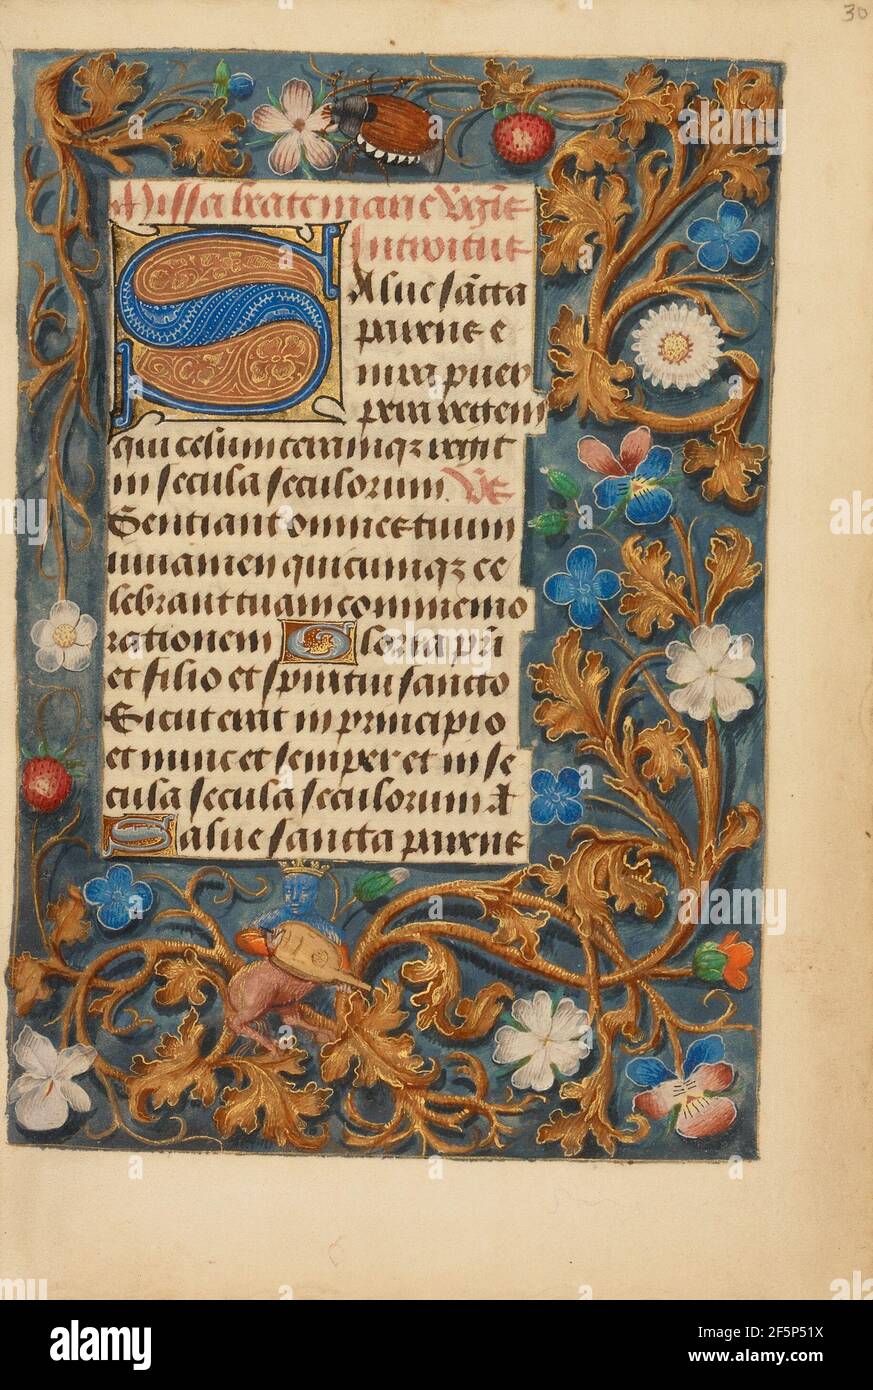 30
Missa beate marie v̾gīs
Introitus
Salue sācta
parens e
nixa puer
pera regem
qui celum terramq̄ʒ regit
in secula seculorum. Vs
Sentiant omnes tuum
iuuamen quicumqʒ ce
lebrant tuam commemo
rationem Gloria pri
et filio et spiritui sancto
Sicut erat in principio
et nunc et semper et in se
cula secula seculorum A
Salue sancta parens
alamy
Image ID: 2F5P51X
www.alamy.com